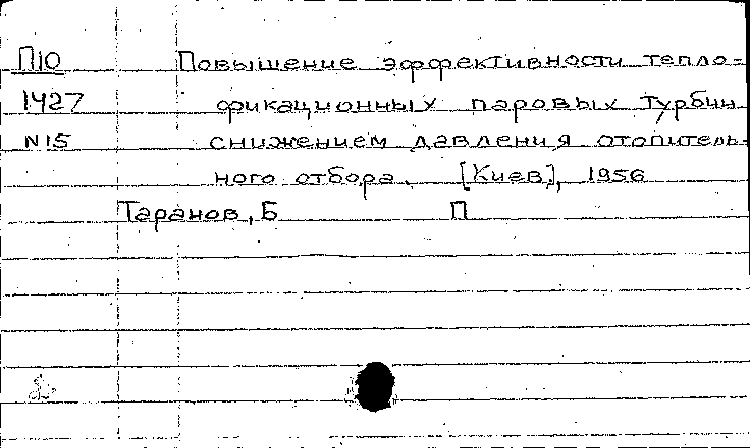 П10 Повышение эффективности тепло=
1427 фикационных паровых турбин
N15 снижением давления отопитель-
ного отбора. [Киев], 1956
Таранов, Б П